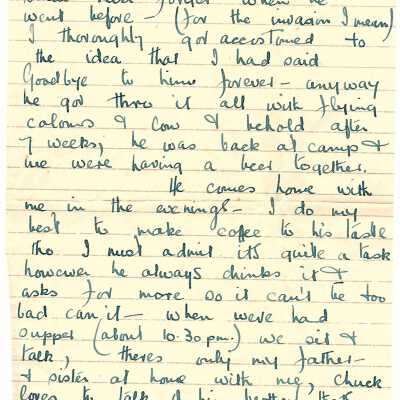 never forget when he
went before — (for the invasion I mean)
I thoroughly got accustomed to
the idea that I had said
Goodbye to him forever — anyway
he got thro it all with flying
colours & low & behold after
7 weeks, he was back at camp &
we were having a beer together.
He comes home with
me in the evenings — I do my
best to make coffee to his taste
tho I must admit its quite a task
however he always drinks it &
asks for more so it can't be too
bad can it — when we've had
supper (about 10.30 pm.) we sit &
talk, theres only my father —
& sister at home with me, Chuck
loves to talk of his brother